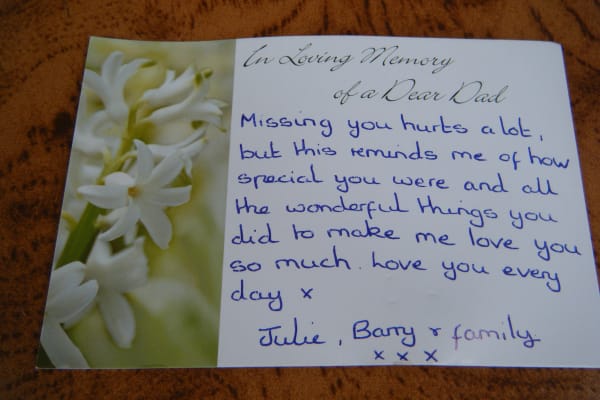 In Loving Memory
of a Dear Dad
Missing you hurts a lot,
but this reminds me of how
special you were and all
the wonderful things you
did to make me love you
so much. Love you every
day x
Julie, Barry & family
x x x